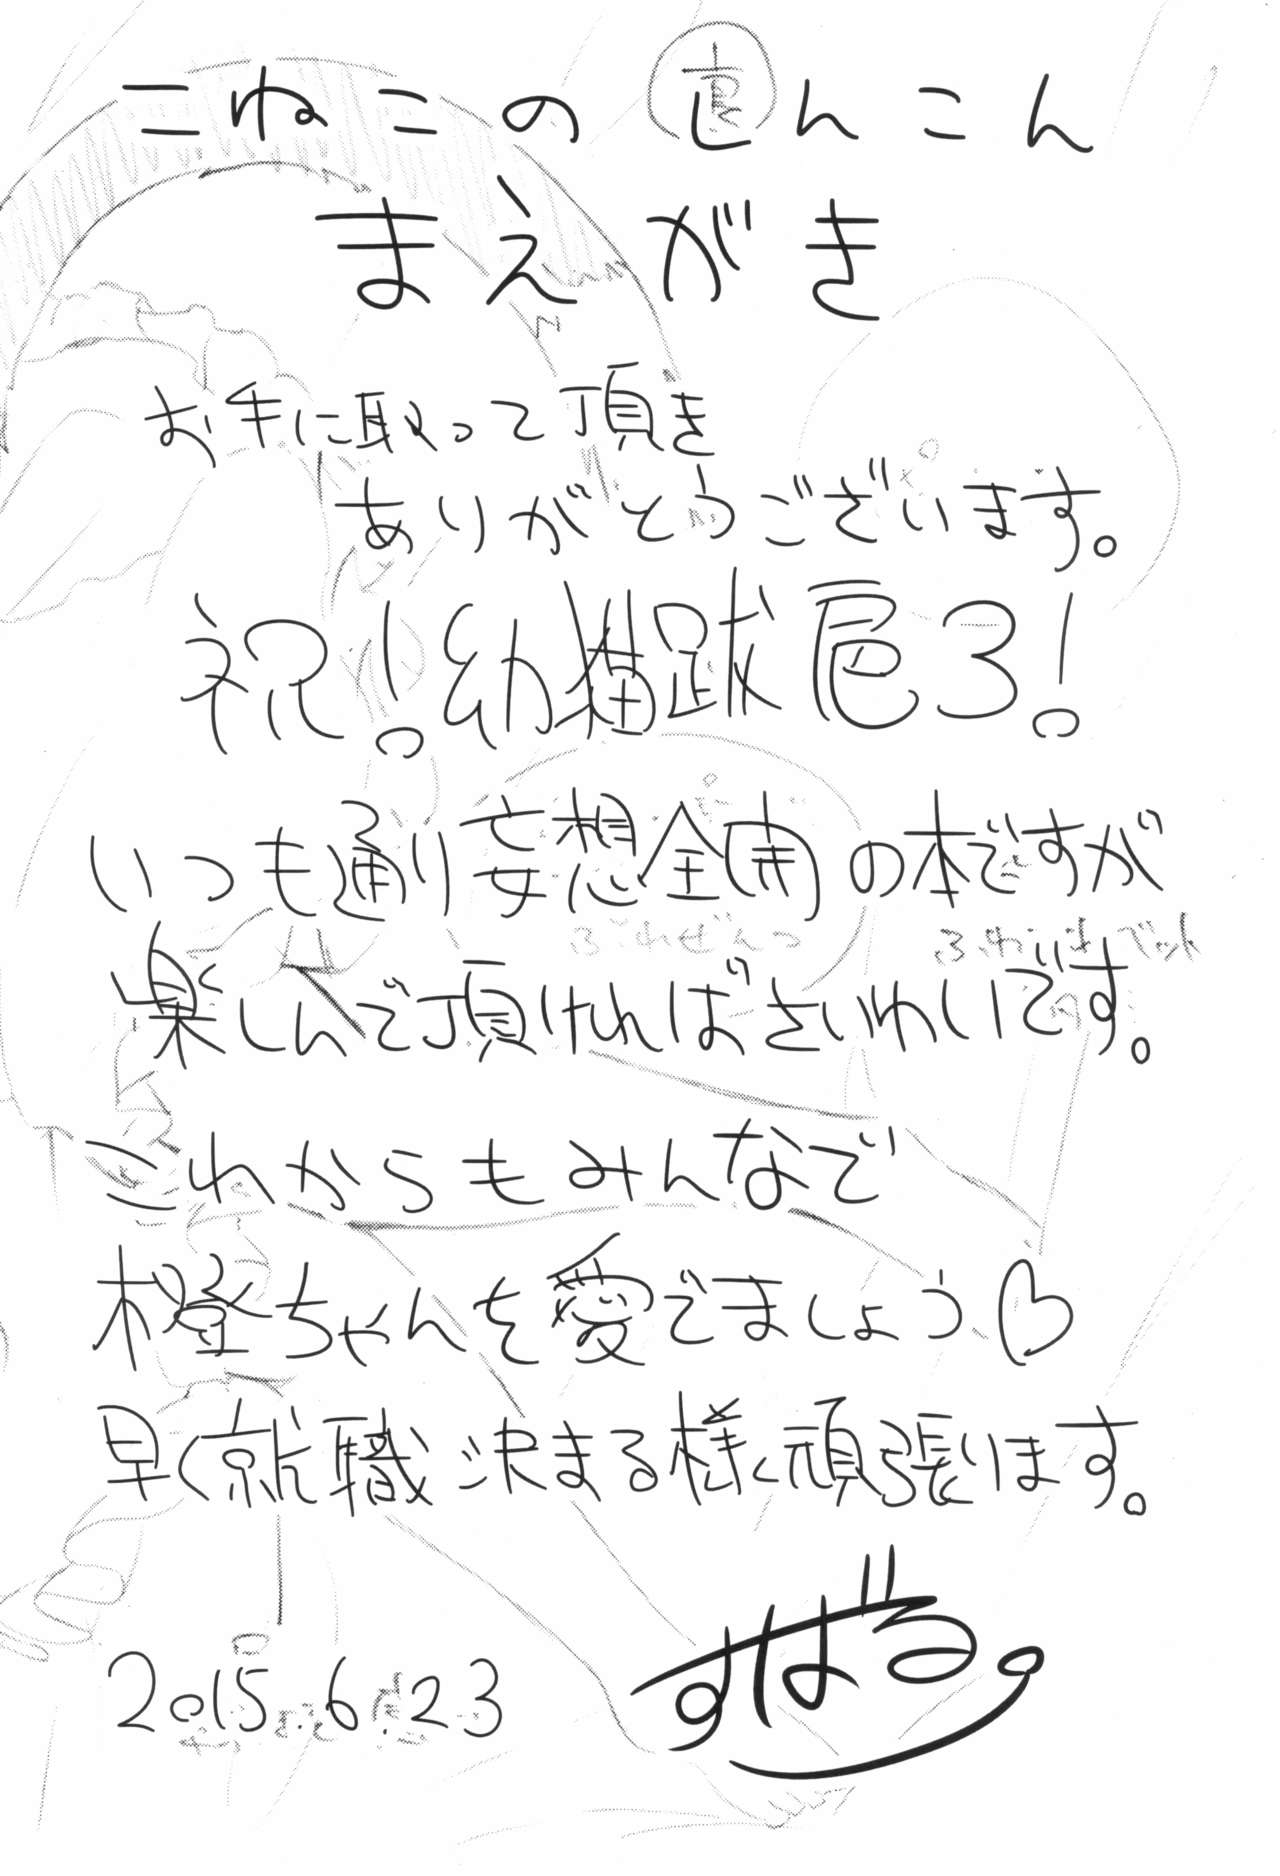 こねこの しんこん
まえがき
お手に取って頂き
ありがとうございます。
祝!幼猫跋扈3!
いつも通り妄想全開の本ですが
楽しんで頂ければさいわいです。
これからもみんなで
橙ちゃんを愛でましょう♡
早く就職決まる様頑張ります。
2015.6.23
すばる。